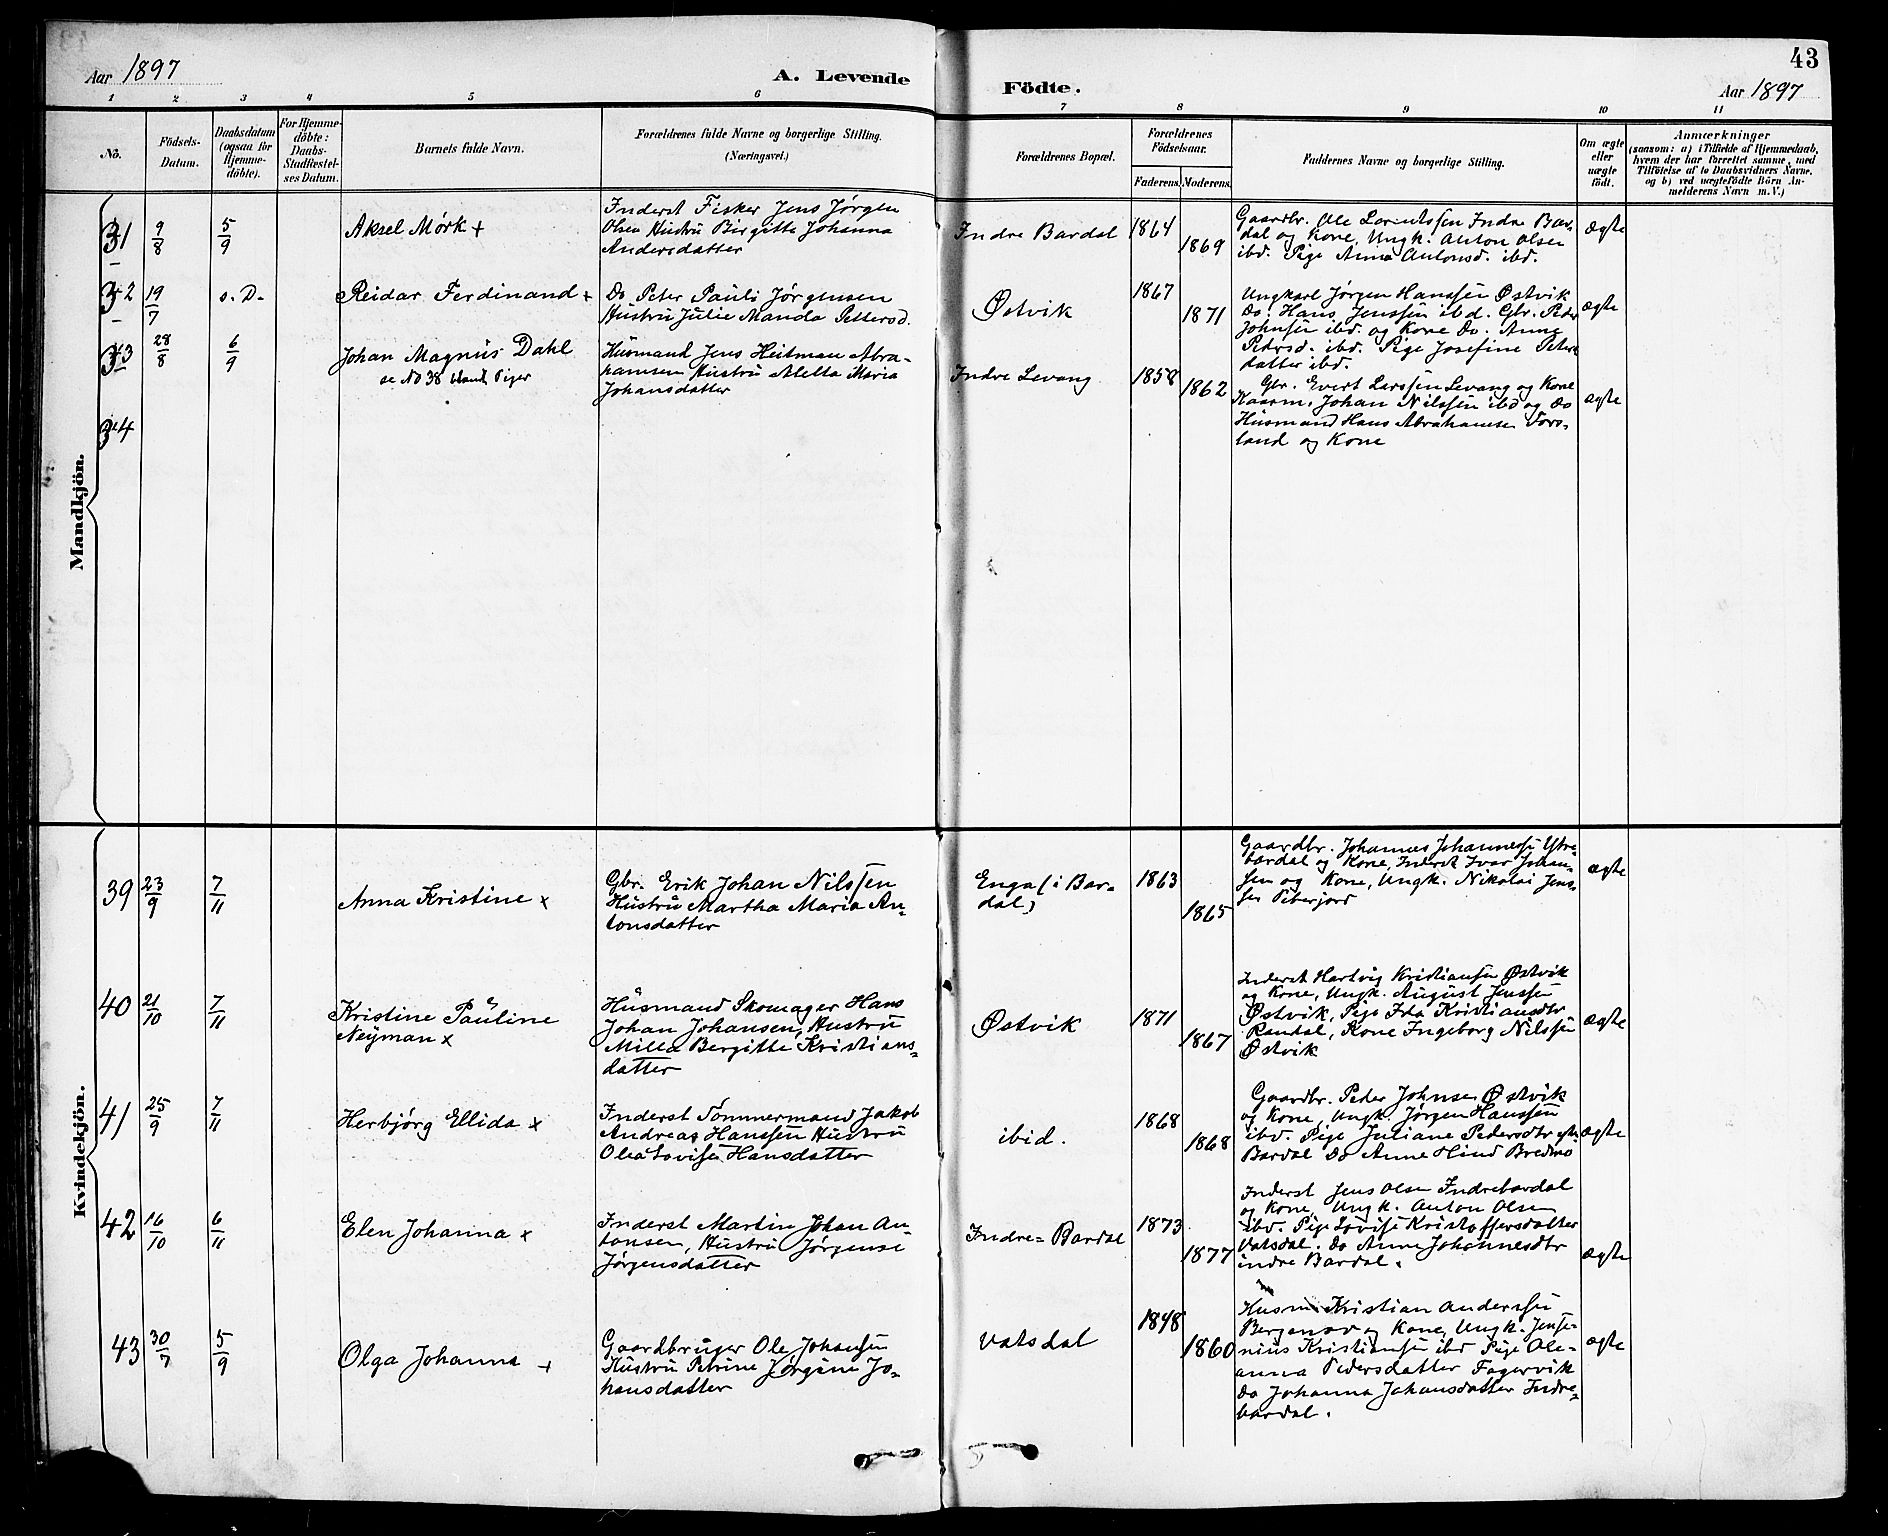 43
Aar 1897
A. Levende
Födte.
Aar 1897
1 2 3 4 5 6 7 8 9 10 11
No.
Födsels-
Datum.
Daabsdatum
(ogsaa for
Hjemme-
döbte).
For Hjemme-
döbte:
Daabs-
Stadfæstel-
ses Datum.
Barnets fulde Navn.
Forældrenes fulde Navne og borgerlige Stilling.
(Næringsvei.)
Forældrenes Bopæl.
Forældrenes
Födselsaar.
Faderens.
Moderens.
Faddernes Navne og borgerlige Stilling.
Om ægte
eller
uægte
födt.
Anmærkninger
(saasom: a) i Tilfælde af Hjemmedaab,
hvem der har forrettet samme, med
Tilföielse af to Daabsvidners Navne,
og b) ved uægtefödte Börn An-
melderens Navn m. V.)
Mandkjön.
31
9/8
5/9
Aksel Mørk +
Inderst Fisker Jens Jørgen
Olsen Hustru Birgitte Johanna
Andersdatter
Indre Bardal
1864
1869
Gaardbr. Ole Larentssen Indre Bar-
dal og Kone, Ungk. Anton Olsen
ibd. Pige Anna Antonsd. ibd.
ægte
32
19/7
s. D.
Reidar Ferdinand +
Do Peter Pauli Jørgensen
Hustru Julie Manda Pettersd.
Østvik
1867
1871
Ungkarl Jørgen Hanssen Østvik
Do. Hans Jenssen ibd. Gbr. Peder
Johnsen ibd. og Kone Do. Anne
Pedersd. ibd. Pige Josefine Peters
datter ibd.
ægte
33
28/8
6/9
Johan Magnus Dahl
se No 38 blandt Piger
Husmand Jens Heitman Abra-
hamsen Hustru Mella Maria
Johansdatter
Indre Levang
1858
1862
Gbr. Evert Larssen Levang og Kone
Kaarm. Johan Nilssen ibd og Do
Husmand Hans Abrahamsen Fors-
land og Kone
ægte
34
Kvindekjön.
39
23/9
7/11
Anna Kristine x
Gbr. Erik Johan Nilssen
Hustru Martha Maria An-
tonsdatter
Enga (i Bar-
dal)
1863
1865
Gaardbr. Johannes Johannessen Ytre-
bardal og Kone, Inderst Ivar Johan-
sen og Kone, Ungk. Nikolai Jens-
sen
ægte
40
21/10
7/11
Kristine Pauline
Neyman x
Husmand Skomager Hans
Johan Johansen, Hustru
Milla Bergitte Kristians-
datter
Østvik
1871
1867
Inderst Hartvig Kristiansen Østvik
og Kone, Ungk. August Jenssen
Østvik, Pige Ida Kristiansdtr
Randal, Kone Ingeborg Nilssen
Østvik
ægte
41
25/9
7/11
Herbjørg Ellida x
Inderst Tömmermand Jakob
Andreas Hanssen Hustru
Olea Lovise Hansdatter
ibid.
1868
1868
Gaardbr. Peder Johnsen Østvik
og Kone, Ungk. Jørgen Hanssen
ibd. Pige Juliane Pedersdtr
Bardal Do Anne Hind Bredmo
ægte
42
16/10
6/11
Elen Johanna x
Inderst Martin Johan An-
tonsen, Hustru Jørgense
Jørgensdatter
Indre-Bardal
1873
1877
Inderst Jens Olsen Indrebardal
og Kone, Ungk. Anton Olsen
ibd. Pige Lovise Kristoffersdatter
Vatsdal. Do Anne Johannesdtr
indre Bardal.
ægte
43
30/7
5/9
Olga Johanna +
Gaardbruger Ole Johansen
Hustru Petrine Jørgine Jo-
hansdatter
Vatsdal
1848
1860
Husm Kristian Anderssen
og Kone, Ungk. Jense-
nius Kristiansen ibd Pige Ole-
anna Pedersdatter Fagervik
Do Johanna Johansdatter Indre-
bardal.
ægte